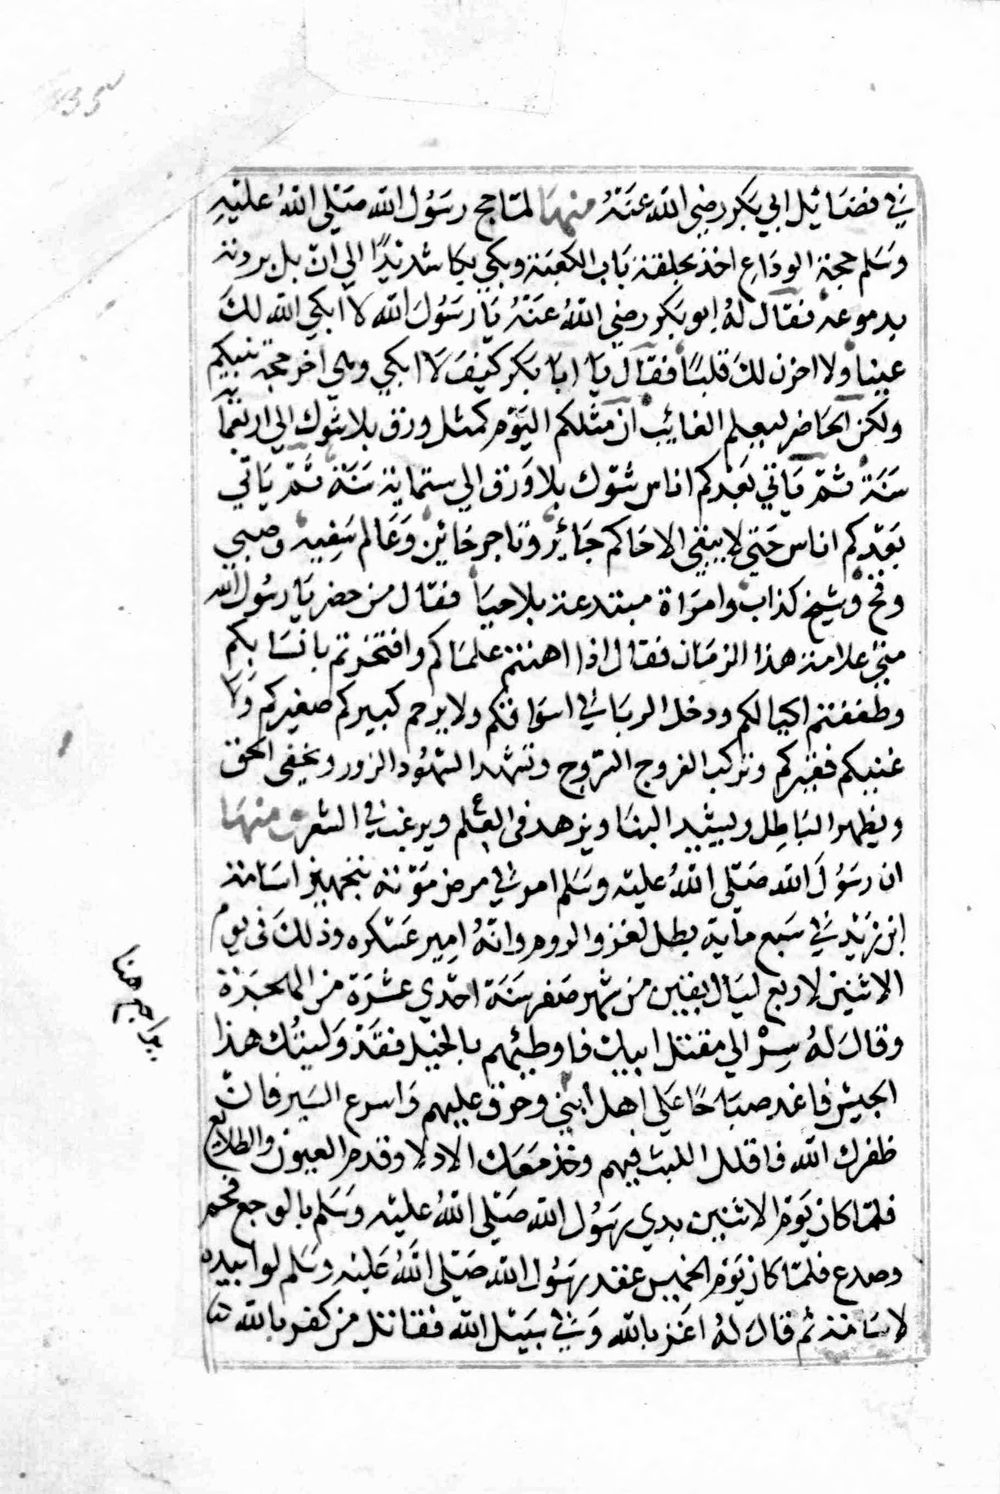 35
في فضائل ابي بكر رضي الله عنه منها لما حج رسول الله صلى الله عليه
وسلم حجة الوداع اخذ بحلقة باب الكعبة وبكي بكا شديدًا الي ان بل بردته
بدموعه فقال له ابو بكر رضي الله عنه يا رسول الله لا ابكي الله لك
عينا ولا احزن لك قلبًا فقال يا ابا بكر كيف لا ابكي وهي اخر حجة نبيكم
ولكن الحاضر ليعلم الغائب ان مثلكم اليوم كمثل ورق بلا شوك الي اربعماية
سنة ثم ياتي بعدكم اناس شوك بلا ورق الي ستماية سنة ثم ياتي
بعدكم اناس حتى لا يبقي الا حاكم جائر وتاجر خائن وعالم سفيه وصبي
وقح وشيخ كذاب وامراة مبتدعة بلا حيا فقال من حضر يا رسول الله
متي علامة هذا الزمان فقال اذا اهنتم علماكم وافتخرتم بانسابكم
وطففتم اكيالكم ودخل الربا في اسواقكم ولا يرحم كبيركم صغيركم ولا
غنيكم فقيركم وتركب الفروج السروج وتشهد الشهود الزور ويخفي الحق
ويظهر الباطل ويشيد البنا ويزهد في العلم ويرغب في الشعر منها
ان رسول الله صلى الله عليه وسلم امر في مرض موته بتجهيز اسامة
ابن زيد في سبع ماية بطل لغزو الروم وانه امير عسكره وذلك في يوم
الاثنين لاربع ليال بقين من شهر صفر سنة احدي عشرة من الهجرة
وقال له سر الي مقتل ابيك فاوطيهم بالخيل فقد وليتك هذا
الجيش فاغد صباحًا علي اهل ابني وحرق عليهم واسرع السير فان
ظفرك الله فاقلل اللبث فيهم وخذ معك الادلا وقدم العيون والطلايع
فلما كان يوم الاثنين بدي برسول الله صلى الله عليه وسلم بالوجع فحم
وصدع فلما كان يوم الخميس عقد رسول الله صلى الله عليه وسلم لوا بيده
لاسامة ثم قال له اغز بالله وفي سبيل الله فقاتل من كفر بالله
يراجع هنا